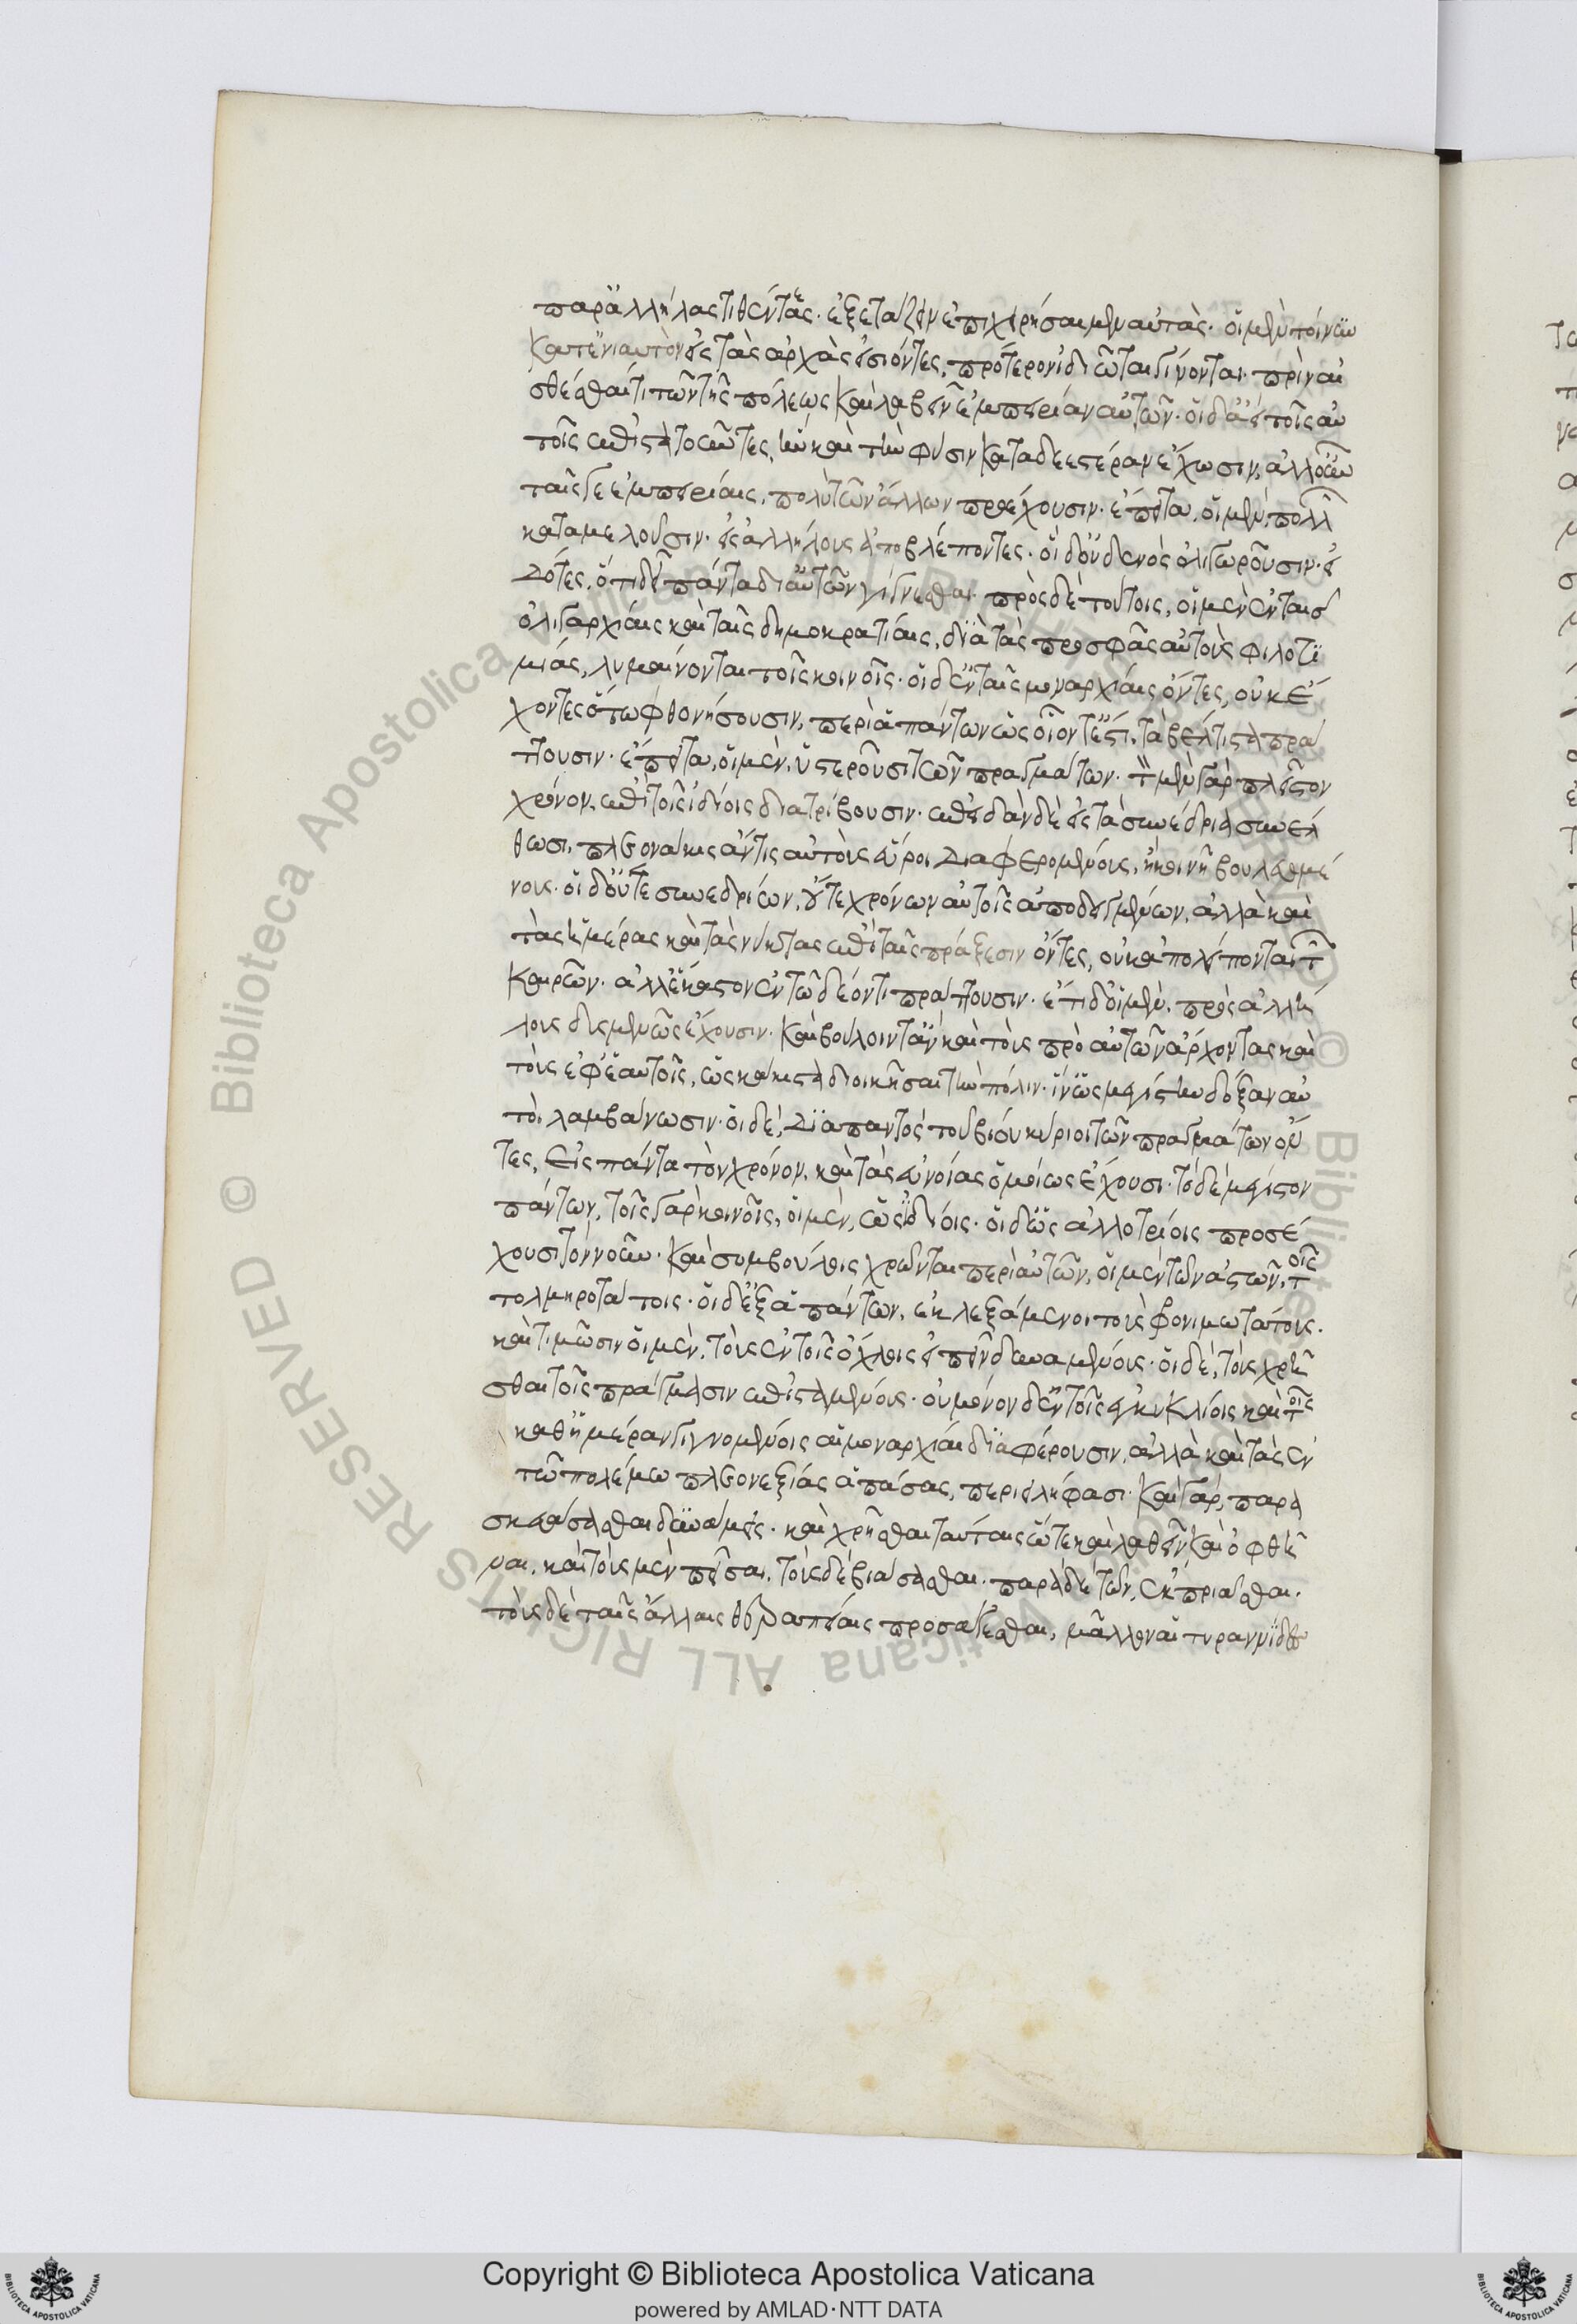 παρ' ἀλλήλας τιθέντας· ἐξετάζειν ἐπιχειρήσαιμεν αὐτάς· οἱ μὲν τοίνυν
κατ' ἐνιαυτὸν εἰς τὰς ἀρχὰς εἰσιόντες, πρότερον ἰδιῶται γίνονται· πρὶν αἰ
σθέσθαι τι τῶν τῆς πόλεως καὶ λαβεῖν ἐμπειρίαν αὐτῶν· οἱ δ' ἀεὶ τοῖς αὐ
τοῖς ἐπιστατοῦντες, ἢν καὶ τὴν φύσιν καταδεεστέραν ἔχωσιν, ἀλλ' οὖν
ταῖς γε ἐμπειρίαις, πολὺ τῶν ἄλλων προέχουσιν· ἔπειτα, οἱ μὲν, πολλῶν
καταμελοῦσιν· εἰς ἀλλήλους ἀποβλέποντες· οἱ δ' οὐδενὸς ὀλιγωροῦσιν· εἰ
δότες, ὅτι δεῖ πάντα δι' αὐτῶν γίγνεσθαι· πρὸς δὲ τούτοις, οἱ μὲν ἐν ταῖς
ὀλιγαρχίαις καὶ ταῖς δημοκρατίαις, διὰ τὰς πρὸς σφᾶς αὐτοὺς φιλοτι
μίας, λυμαίνονται τοῖς κοινοῖς· οἱ δ' ἐν ταῖς μοναρχίαις ὄντες, οὐκ ἔ
χοντες ὅτῳ φθονήσουσιν, περὶ ἁπάντων ὡς οἷόν τ' ἐστι, τὰ βέλτιστα πρά
ττουσιν· ἔπειτα, οἱ μὲν, ὑστεροῦσι τῶν πραγμάτων· τὸν μὲν γὰρ πλεῖστον
χρόνον, ἐπὶ τοῖς ἰδίοις διατρίβουσιν· ἐπειδὰν δὲ εἰς τὰ συνέδρια συνέλ
θωσι, πλεονάκις ἄν τις αὐτοὺς εὕροι διαφερομένους, ἢ κοινῇ βουλευομέ
νους· οἱ δ' οὔτε συνεδρίων, οὔτε χρόνων αὐτοῖς ἀποδεδειγμένων, ἀλλὰ καὶ
τὰς ἡμέρας καὶ τὰς νύκτας ἐπὶ ταῖς πράξεσιν ὄντες, οὐκ ἀπολείπονται τῶν
καιρῶν· ἀλλ' ἕκαστον ἐν τῷ δέοντι πράττουσιν· ἔτι δ' οἱ μὲν, πρὸς ἀλλή
λους δυσμενῶς ἔχουσιν· καὶ βούλοιντ' ἂν καὶ τοὺς πρὸ αὐτῶν ἄρχοντας καὶ
τοὺς ἐφ' ἑαυτοῖς, ὡς κάκιστα διοικῆσαι τὴν πόλιν· ἵν' ὡς μεγίστην δόξαν αὐ
τοὶ λαμβάνωσιν· οἱ δὲ, διὰ παντὸς τοῦ βίου κύριοι τῶν πραγμάτων ὄν
τες, εἰς πάντα τὸν χρόνον, καὶ τὰς εὐνοίας ὁμοίως ἔχουσι· τὸ δὲ μέγιστον
πάντων, τοῖς γὰρ κοινοῖς, οἱ μὲν, ὡς ἰδίοις· οἱ δ' ὡς ἀλλοτρίοις προσέ
χουσι τὸν νοῦν· καὶ συμβούλοις χρῶνται περὶ αὐτῶν, οἱ μὲν τῶν ἀστῶν, τοῖς
τολμηροτάτοις· οἱ δ' ἐξ ἁπάντων, ἐκλεξάμενοι τοὺς φρονιμωτάτους.
καὶ τιμῶσιν οἱ μὲν, τοὺς ἐν τοῖς ὄχλοις εἰπεῖν δυναμένους· οἱ δὲ, τοὺς χρῆ
σθαι τοῖς πράγμασιν ἐπισταμένους· οὐ μόνον δ' ἐν τοῖς ἐγκυκλίοις καὶ τοῖς
καθ' ἡμέραν γιγνομένοις αἱ μοναρχίαι διαφέρουσιν, ἀλλὰ καὶ τὰς ἐν
τῷ πολέμῳ πλεονεξίας ἁπάσας, περιειλήφασι· καὶ γὰρ, παρα
σκευάσασθαι δυνάμεις· καὶ χρῆσθαι ταύταις ὥστε καὶ λαθεῖν καὶ ὀφθῆ
ναι, καὶ τοὺς μὲν πεῖσαι, τοὺς δὲ βιάσασθαι· παρὰ δὲ τῶν, ἐκπρίασθαι·
τοὺς δὲ ταῖς ἄλλαις θεραπείαις προσαγέσθαι, μᾶλλον αἱ τυραννίδες
Copyright © Biblioteca Apostolica Vaticana
powered by AMLAD·NTT DATA